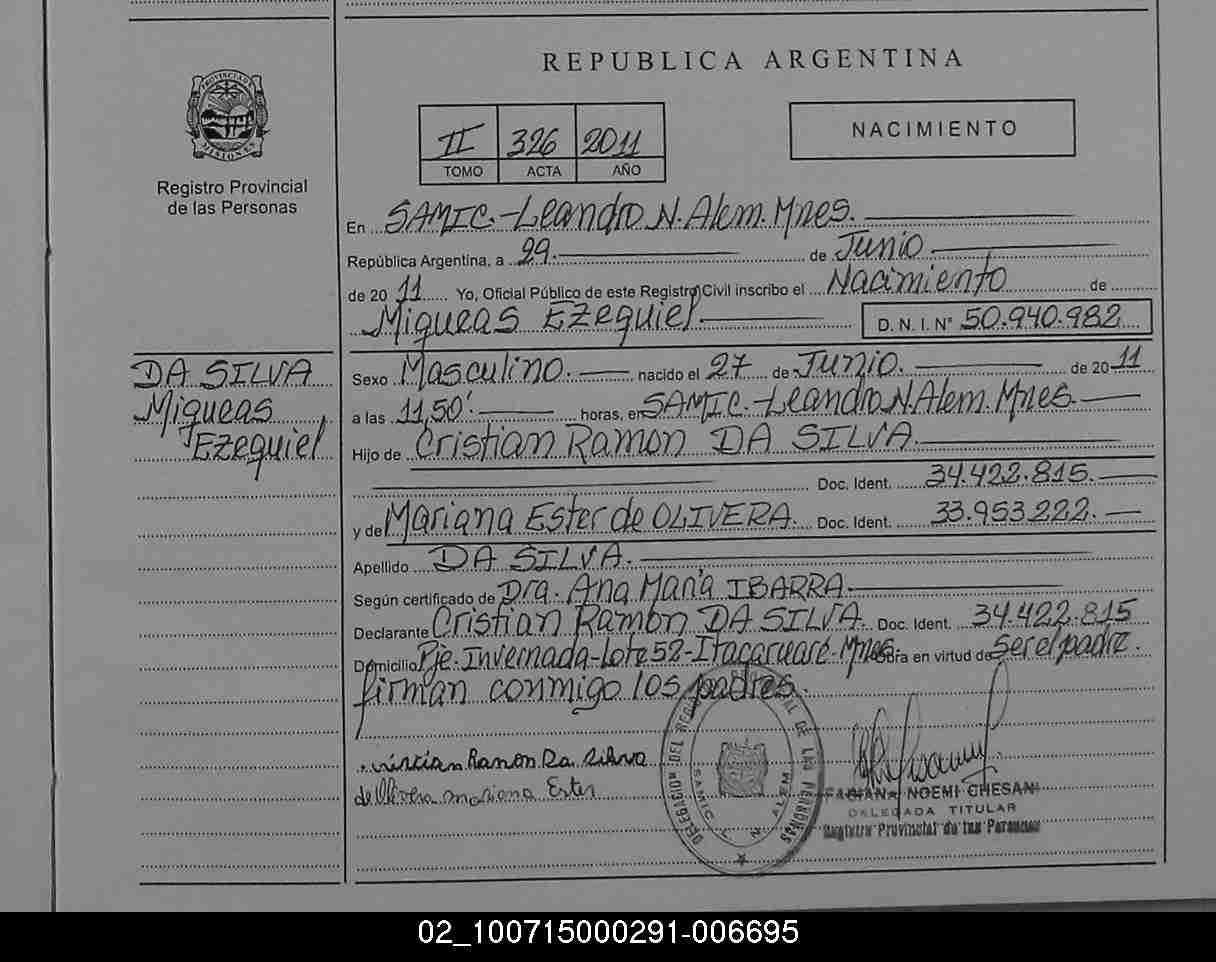 REPUBLICA ARGENTINA
PROVINCIA DE MISIONES
Registro Provincial
de las Personas
II 326 2011
TOMO ACTA AÑO
NACIMIENTO
En SAMIC.-Leandro N. Alem. Mnes.
República Argentina, a 29. de Junio
de 20 11 Yo, Oficial Público de este Registro Civil inscribo el Nacimiento de
Miqueas Ezequiel D. N. I. N° 50.940.982
DA SILVA
Miqueas
Ezequiel
Sexo Masculino. nacido el 27 de Junio. de 20 11
a las 11,50' horas, en SAMIC.-Leandro N. Alem. Mnes.
Hijo de Cristian Ramon DA SILVA
Doc. Ident. 34.422.815.
y de Mariana Ester de OLIVERA. Doc. Ident. 33.953.222.
Apellido DA SILVA.
Según certificado de Dra. Ana María IBARRA
Declarante Cristian Ramon DA SILVA. Doc. Ident. 34.422.815
Domicilio Pje. Invernada-Lote 52-Itacaruaré-Mnes. Obra en virtud de Ser el padre.
firman conmigo los padres.
Ramon Da Silva
de Olivera mariana Ester
DELEGACION DEL REGISTRO PROVINCIAL DE LAS PERSONAS
SAMIC L. N. ALEM
FABIANA NOEMI CHESANI
DELEGADA TITULAR
Registro Provincial de las Personas
02_100715000291-006695